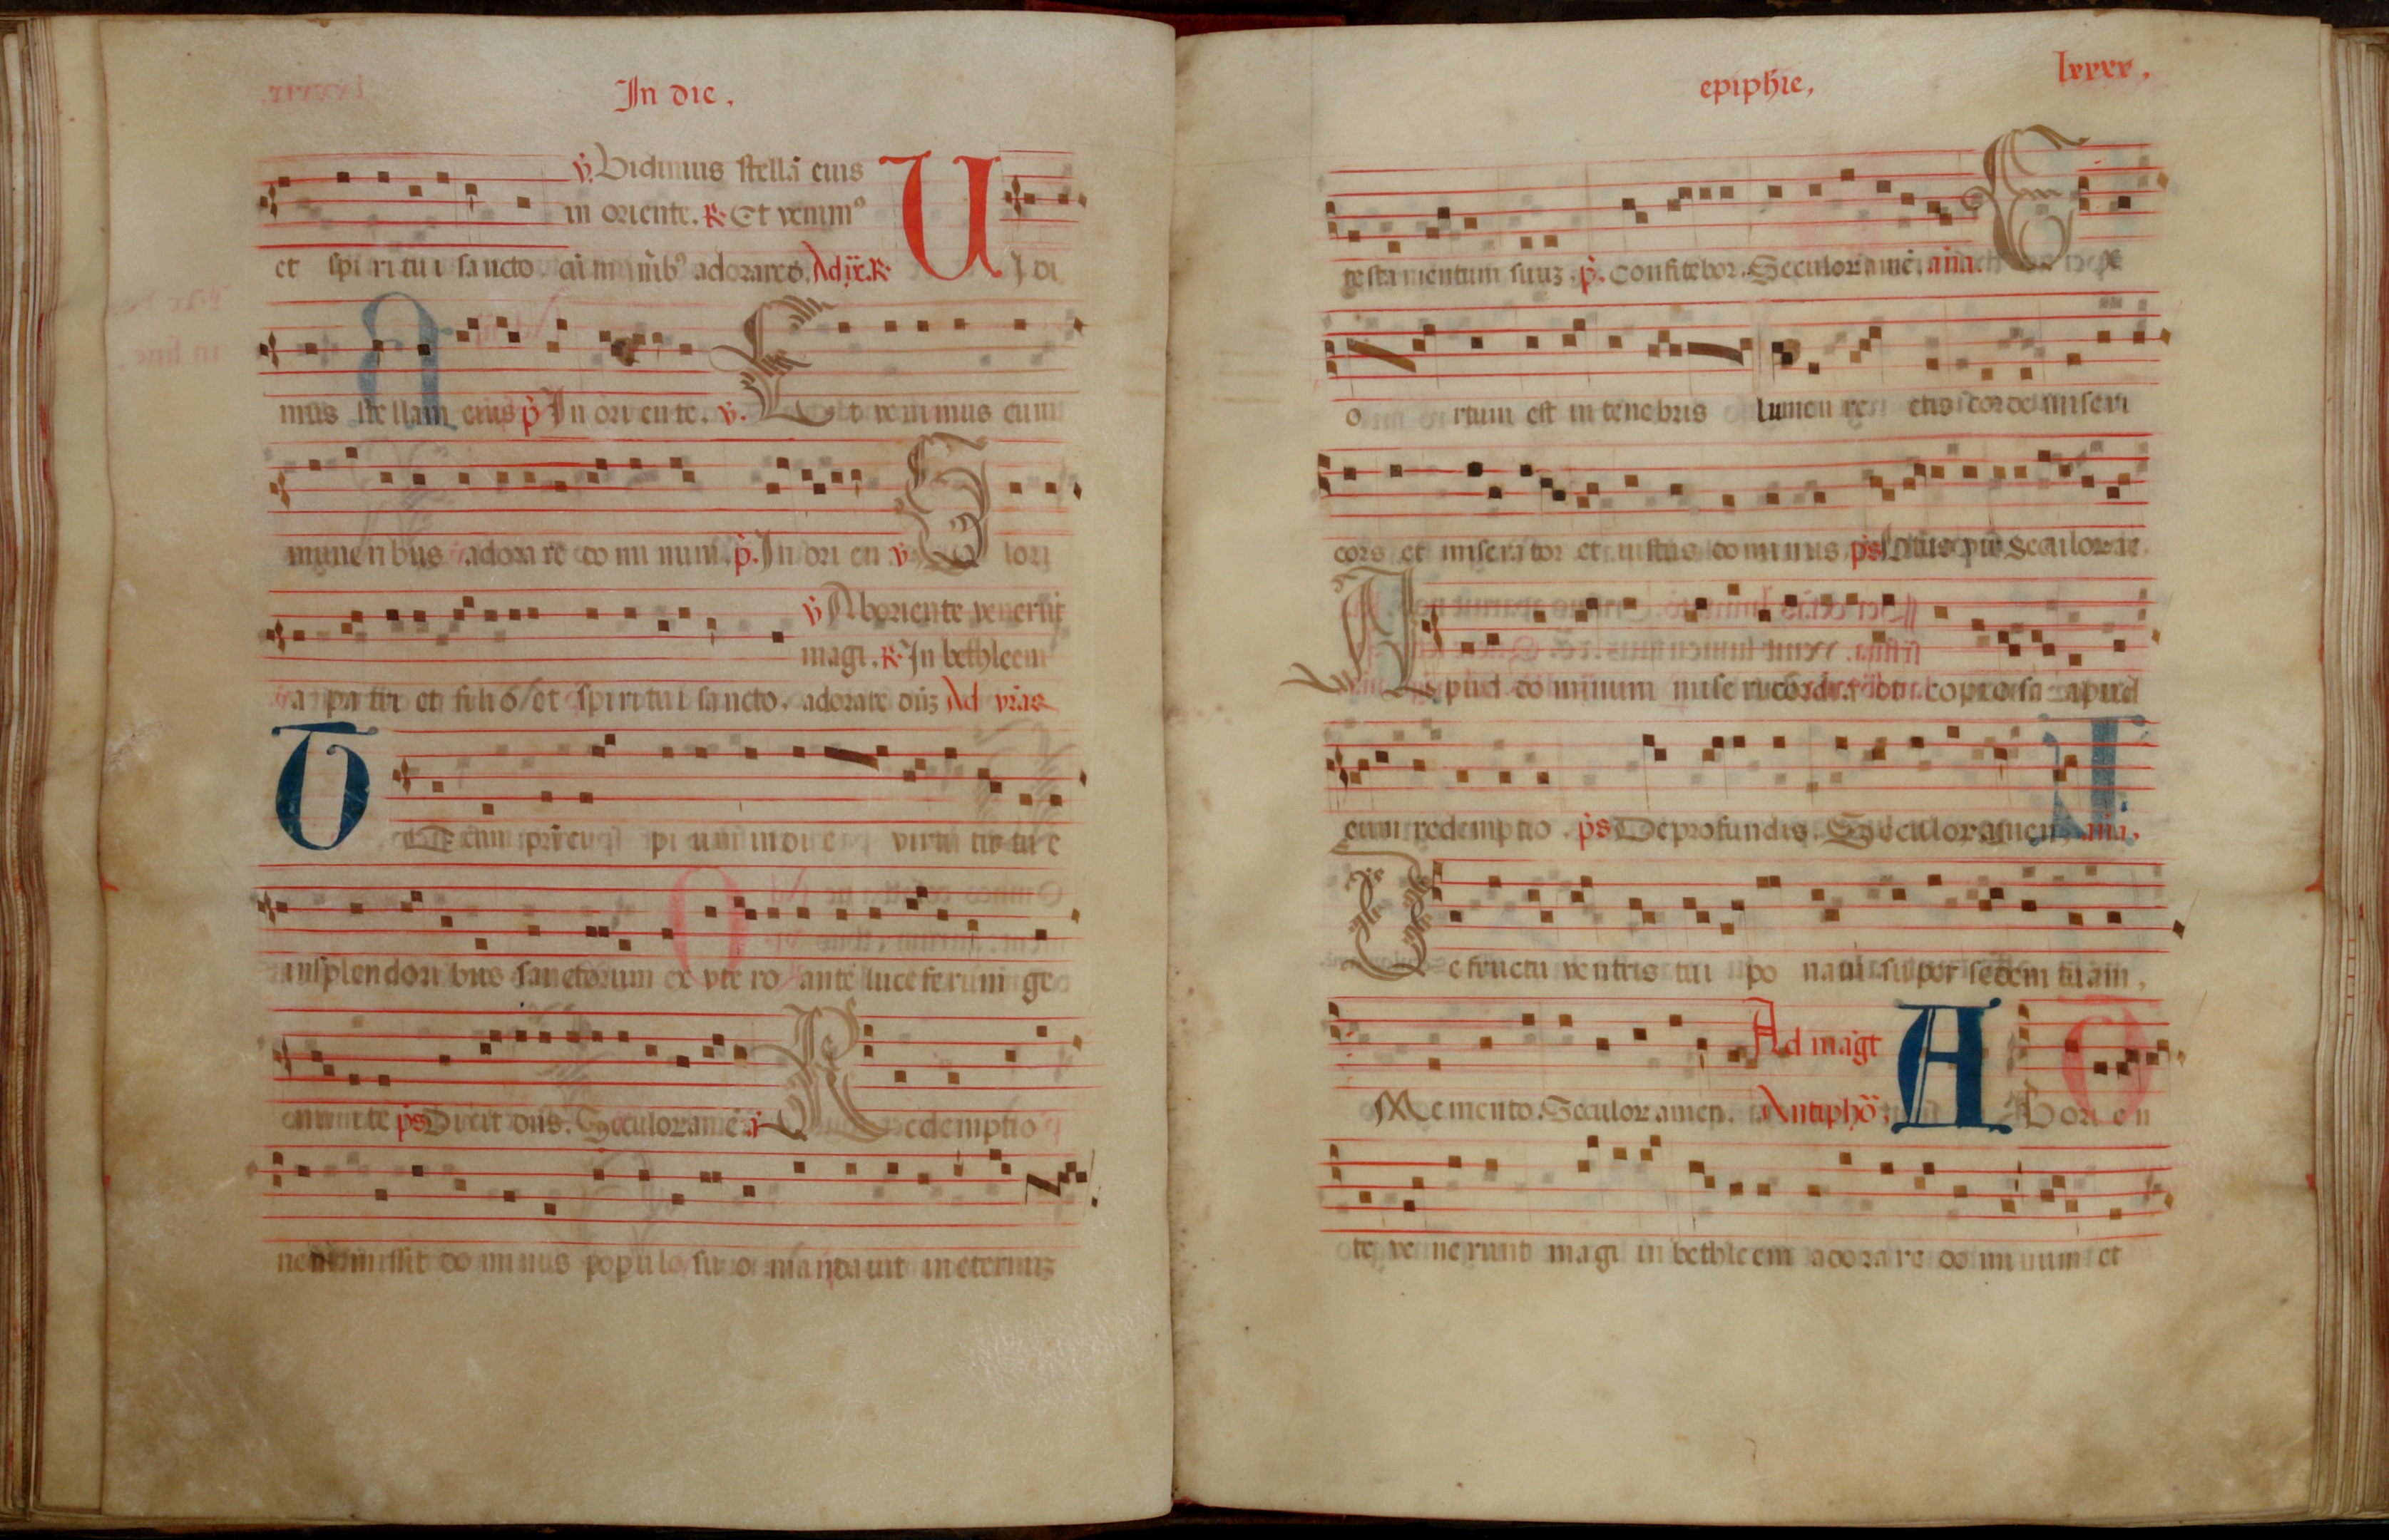 In die.
ꝟ. Vidimus stellã eius
in oriente. ℟. Et venim⁹
et spi ri tu i sancto. cũ munĩb⁹ adorare d. Ad ix. ℟. U J di
mus stellam eius ꝟ In ori en te. ꝟ. Et veni mus cum
mune ri bus adora re do mi num. ꝟ. In ori en ꝟ G lori
ꝟ Ab oriente venerũt
magi. ℟. In bethleem
a pa tri et fili o / et spiritu i sancto. adorare dñz Ad vr̃as
T Tecum prĩ ci pi um in di e virtu tis tu e
in splendori bus sanctorum ex vte ro ante luce ferum ge
nui te ps̃ Dixit dñs. Seculor amẽ. ã R edemptio
nem misit do mi nus popu lo su o manda uit in eternuz
epiphie,
lxxxx,
testa mentum suuz. ps̃. Confitebor. Seculor amẽ. aña. E x
o rtum est in tenebris lumen re ctis corde miseri
cors et misera tor et iustus do mi nus ps̃ Btũs vir Seculor ae
A pud do minum mise ricordi a et copiosa apud
eum redemptio. ps̃ De profundis. Seculor amen. aña.
D e fructu ventris tui po nam super sedem tuam,
Ad magt
Memento. Seculor amen. Antiphõ, A b ori en
te ve nerunt magi in bethleem adora re do mi num et